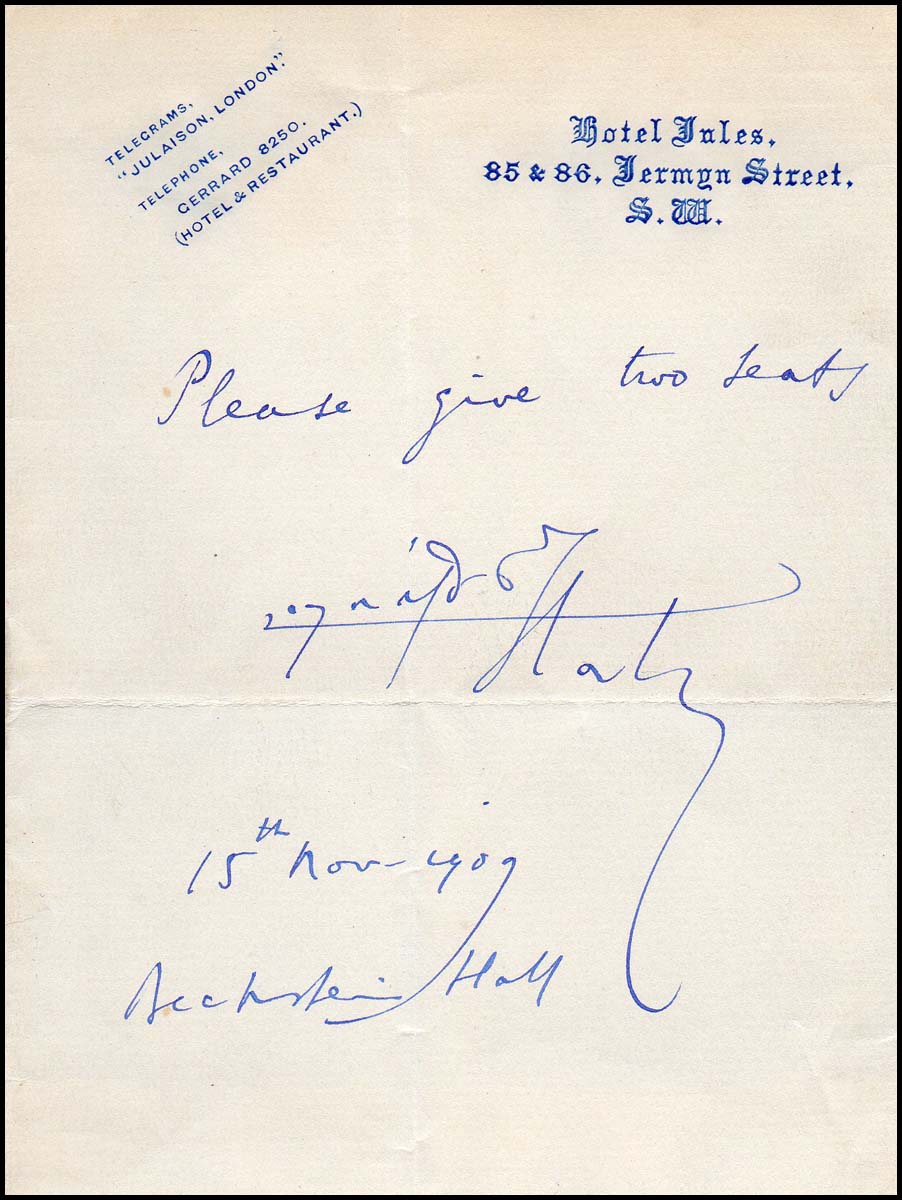 TELEGRAMS,
"JULAISON, LONDON."
TELEPHONE,
GERRARD 8250.
(HOTEL & RESTAURANT.)
Hotel Jules,
85 & 86, Jermyn Street,
S.W.
Please give two seats
15th Nov - 1909
Bechstein Hall